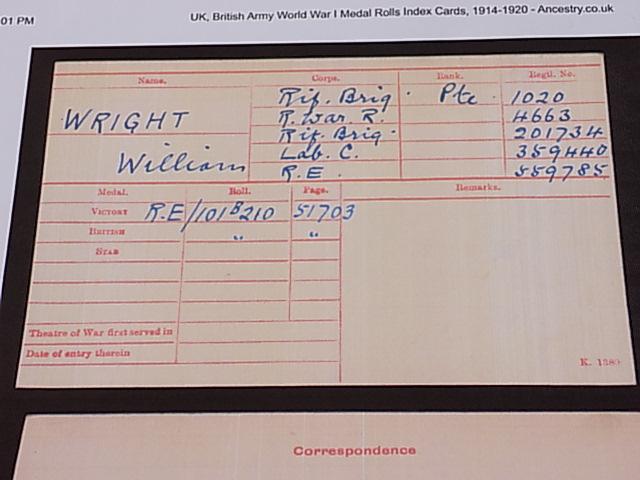 01 PM
UK, British Army World War I Medal Rolls Index Cards, 1914-1920 - Ancestry.co.uk
Name. Corps. Rank. Regtl. No.
WRIGHT
William
Rif. Brig. Pte. 1020
R. War. R. 4663
Rif. Brig. 201734
Lab. C. 359440
R.E. 559785
Medal. Roll. Page. Remarks.
VICTORY R.E/101B210 51703
BRITISH " "
STAR
Theatre of War first served in
Date of entry therein
K. 1380
Correspondence